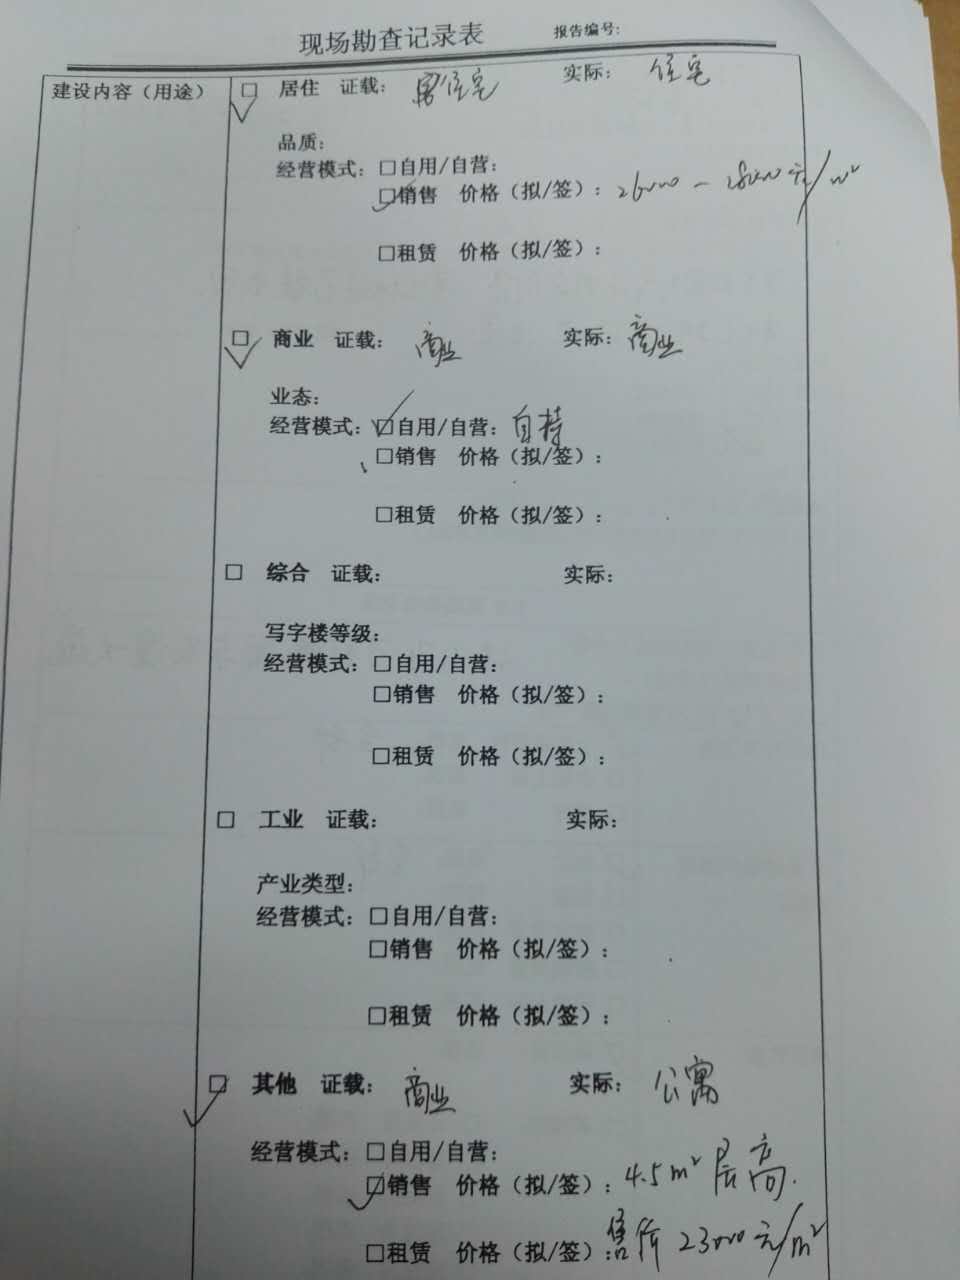 现场勘查记录表 报告编号:
建设内容（用途） □ 居住 证载: 住宅 实际: 住宅
品质:
经营模式: □自用/自营:
□销售 价格（拟/签）: 26000-28000元/m²
□租赁 价格（拟/签）:
□ 商业 证载: 商业 实际: 商业
业态:
经营模式: □自用/自营: 自持
□销售 价格（拟/签）:
□租赁 价格（拟/签）:
□ 综合 证载: 实际:
写字楼等级:
经营模式: □自用/自营:
□销售 价格（拟/签）:
□租赁 价格（拟/签）:
□ 工业 证载: 实际:
产业类型:
经营模式: □自用/自营:
□销售 价格（拟/签）:
□租赁 价格（拟/签）:
□ 其他 证载: 商业 实际: 公寓
经营模式: □自用/自营:
□销售 价格（拟/签）: 4.5m² 层高.
□租赁 价格（拟/签）: 售价 23000元/m²